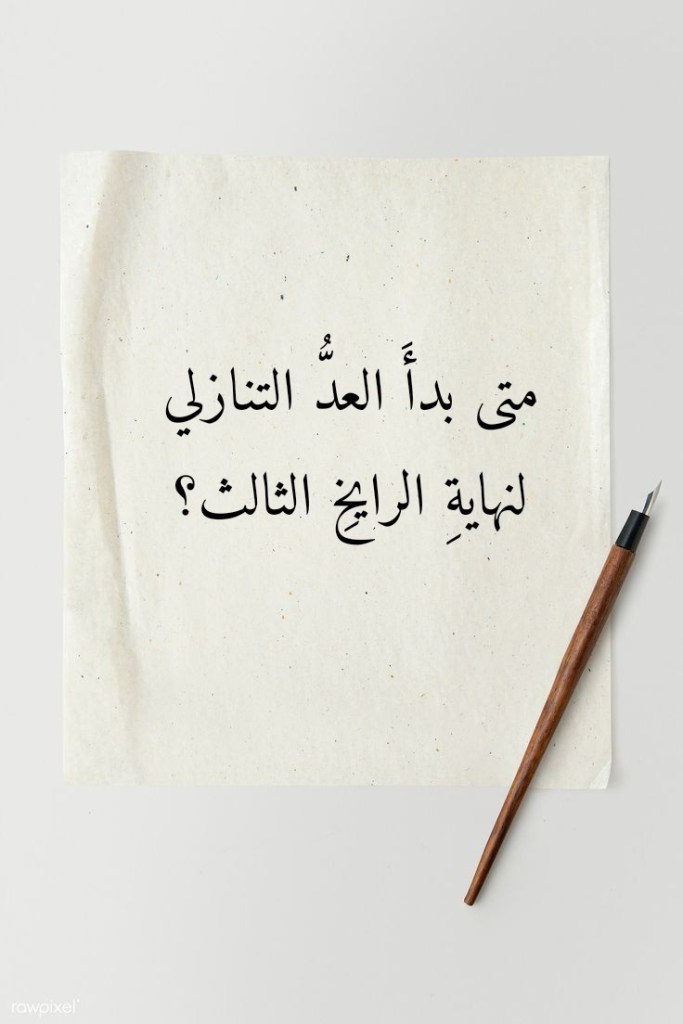 متى بدأَ العدُّ التنازلي
لنهايةِ الرايخِ الثالث؟
rawpixel